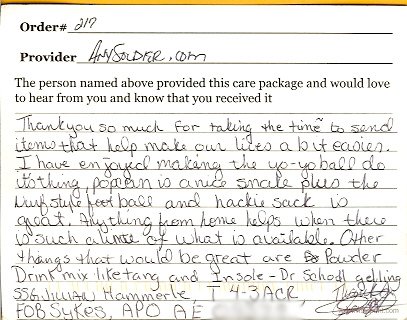 Order# 217
Provider AnySoldier.com
The person named above provided this care package and would love
to hear from you and know that you received it
Thank you so much for taking the time to send
items that help make our lives a bit easier.
I have enjoyed making the yo-yo ball do
its thing, popcorn is a nice snake plus the
style foot ball and hackie sack is
great. Anything from home helps when there
is such a of what is available. Other
things that would be great are Powder
Drink mix like tang and Insole - Dr Scholl gelling
SSG Jillian Hammerle, T 4-3 ACR, Thank
FOB Sykes, APO AE